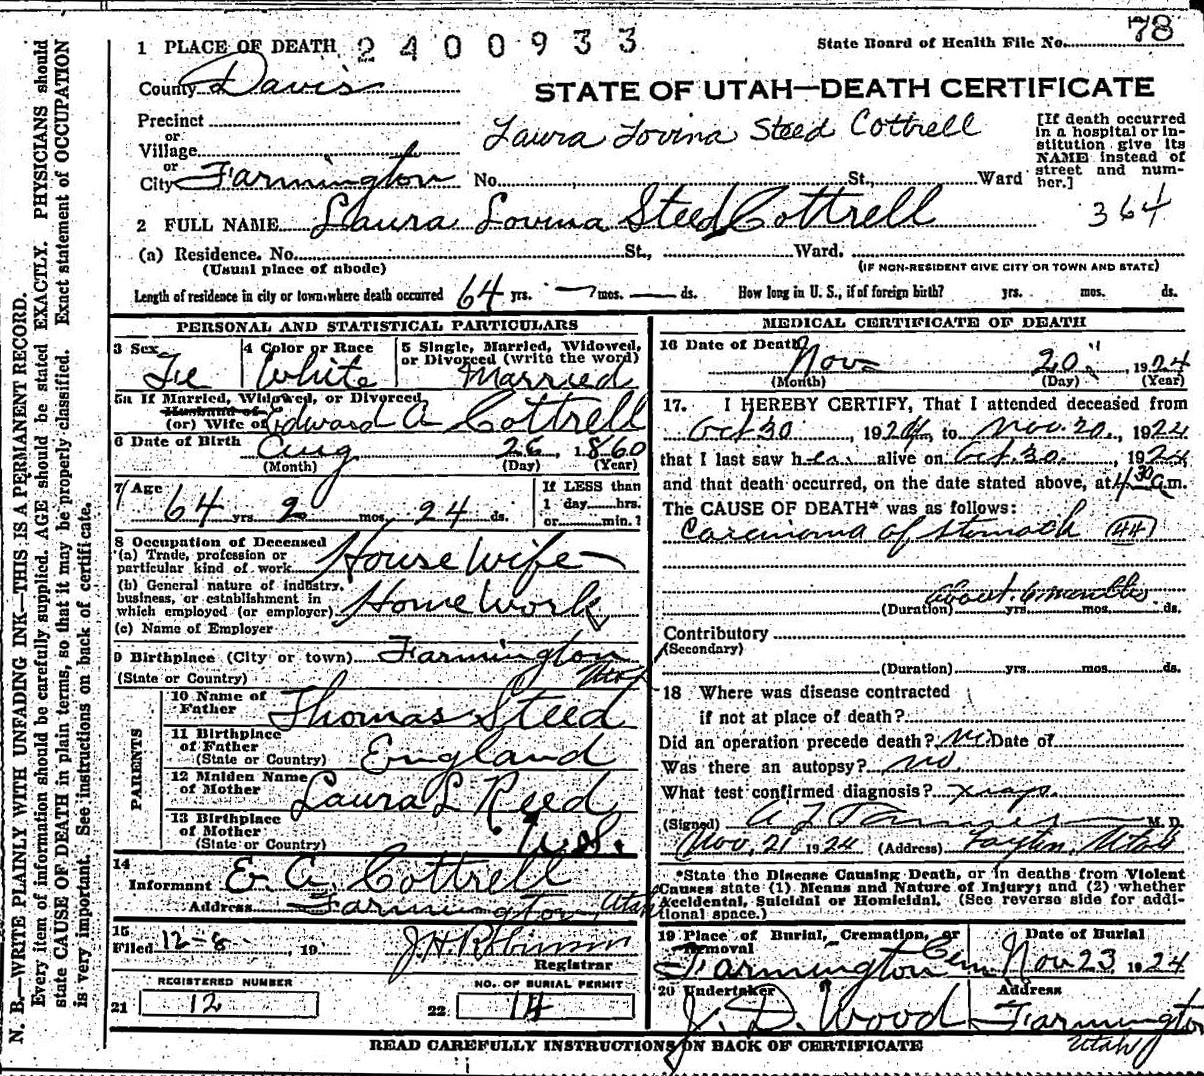 78
1 PLACE OF DEATH 2400933 State Board of Health File No.
County Davis
STATE OF UTAH—DEATH CERTIFICATE
Precinct
or
Village
or
City Farmington No. St., Ward
Laura Lovina Steed Cottrell
[If death occurred
in a hospital or in-
stitution give its
NAME instead of
street and num-
ber.]
364
2 FULL NAME Laura Lovina Steed Cottrell
(a) Residence. No. St., Ward.
(Usual place of abode) (IF NON-RESIDENT GIVE CITY OR TOWN AND STATE)
Length of residence in city or town where death occurred 64 yrs. — mos. — ds. How long in U. S., if of foreign birth? yrs. mos. ds.
PERSONAL AND STATISTICAL PARTICULARS
3 Sex 4 Color or Race 5 Single, Married, Widowed,
or Divorced (write the word)
Fe White Married
5a If Married, Widowed, or Divorced
Husband of
(or) Wife of Edward A Cottrell
6 Date of Birth Aug 26, 1860
(Month) (Day) (Year)
7 Age
64 yrs. 2 mos. 24 ds.
If LESS than
1 day hrs.
or min.?
8 Occupation of Deceased
(a) Trade, profession or
particular kind of work House Wife
(b) General nature of industry,
business, or establishment in
which employed (or employer) Home Work
(c) Name of Employer
9 Birthplace (City or town) Farmington
(State or Country) Utah
PARENTS
10 Name of
Father Thomas Steed
11 Birthplace
of Father
(State or Country) England
12 Maiden Name
of Mother Laura L Reed
13 Birthplace
of Mother
(State or Country) U.S.
14
Informant E. A. Cottrell
Address Farmington, Utah
15
Filed 12-8-, 19 J H Robinson
Registrar
REGISTERED NUMBER NO. OF BURIAL PERMIT
21 12 22 14
MEDICAL CERTIFICATE OF DEATH
16 Date of Death Nov 20, 1924
(Month) (Day) (Year)
17. I HEREBY CERTIFY, That I attended deceased from
Oct 30, 1924, to Nov. 20, 1924
that I last saw her alive on Oct. 30, 1924
and that death occurred, on the date stated above, at 4 30 a.m.
The CAUSE OF DEATH* was as follows:
Carcinoma of stomach (44)
about 6 months
(Duration) yrs. mos. ds.
Contributory
(Secondary)
(Duration) yrs. mos. ds.
18 Where was disease contracted
if not at place of death?
Did an operation precede death? no Date of
Was there an autopsy? no
What test confirmed diagnosis? xrays
(Signed) A Z Tanner M. D.
Nov, 21 1924 (Address) Layton, Utah
*State the Disease Causing Death, or in deaths from Violent
Causes state (1) Means and Nature of Injury; and (2) whether
Accidental, Suicidal or Homicidal. (See reverse side for addi-
tional space.)
19 Place of Burial, Cremation, or
Removal
Date of Burial
Farmington Cem Nov 23 1924
20 Undertaker Address
J. D. Wood Farmington
Utah
READ CAREFULLY INSTRUCTIONS ON BACK OF CERTIFICATE
N. B.—WRITE PLAINLY WITH UNFADING INK—THIS IS A PERMANENT RECORD.
Every item of information should be carefully supplied. AGE should be stated EXACTLY. PHYSICIANS should
state CAUSE OF DEATH in plain terms, so that it may be properly classified. Exact statement of OCCUPATION
is very important. See instructions on back of certificate.